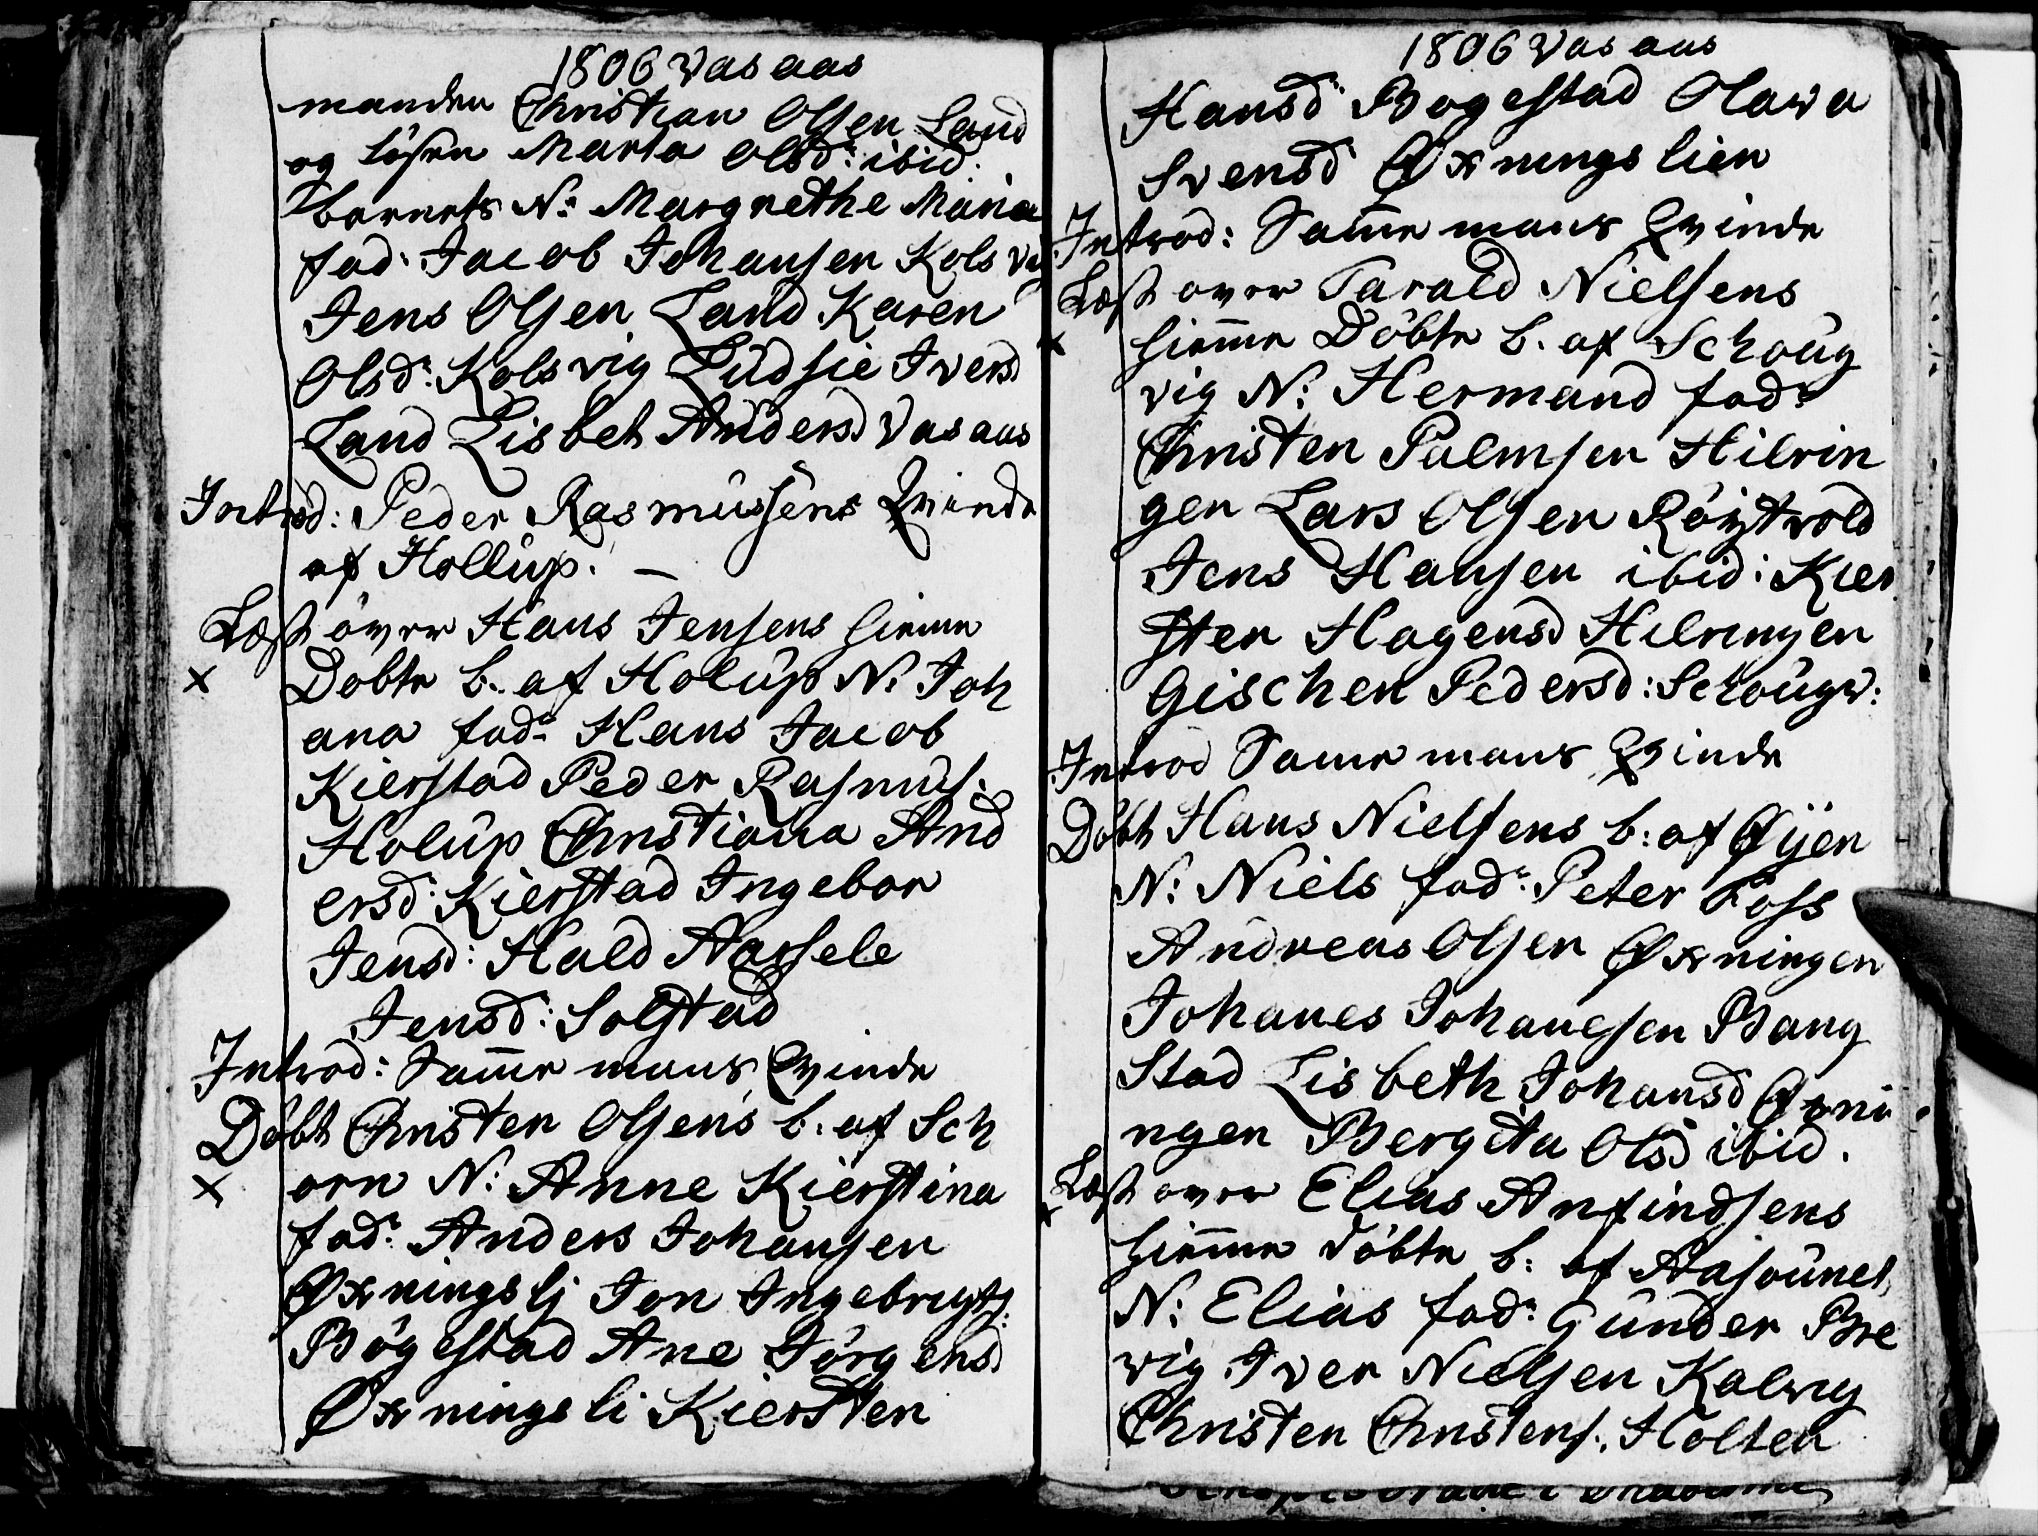 1806 Vasaas
manden Christian Olsen Land
og løsen Marta Olsd: ibid:
barnets N: Margrethe Maria
fad: Jacob Johansen Kolsvig
Jens Olsen Land Karen
Olsd: Kolsvig Ludsie Iversd
Land Lisbet Andersd Vasaas
Introd: Peder Rasmussens Qvinde
af Hollup. —
Læst over Hans Jensens hieme
x Døbte b. af Holup N: Joh
ana fad: Hans Jacob
Kierstad Peder Rasmus:
Holup Christiana And
ersd: Kierstad Ingebor
Jensd: Hald Aassele
Jensd: Solstad
Introd: Same mans Qvinde
Døbt Christen Olsens b. af Sch
x orn N: Anne Kierstina
fad: Anders Johansen
Øxningslj Jon Ingebrigts:
Bøgestad Ane Jørgensd
Øxningsli Kiersten
1806 Vasaas
Hansd Bogestad Olava
Svensd Øxningslien
Introd: Same mans Qvinde
Læst over Tarald Nielsens
x hieme Døbte b. af Schoug
vig N: Hermand fad:
Christen Palmsen Hilrin
gen Lars Olsen Røytvold
Jens Hansen ibid: Kier
sten Hagensd Hilringen
Gischen Pedersd: Schougv:
Introd Same mans Qvinde
Døbt Hans Nielsens b: af Øÿen
N: Niels fad: Peter Foss
Andreas Olsen Øxningen
Johanes Johanesen Bang
Stad Lisbeth Johansd Øxni
ngen Bergita Olsd ibid.
x Læst over Elias Anfindsens
hieme døbte b: af Aasounet
N: Elias fad: Gunder Bre
vig Iver Nielsen Kalvig
Christen Christens: Holten